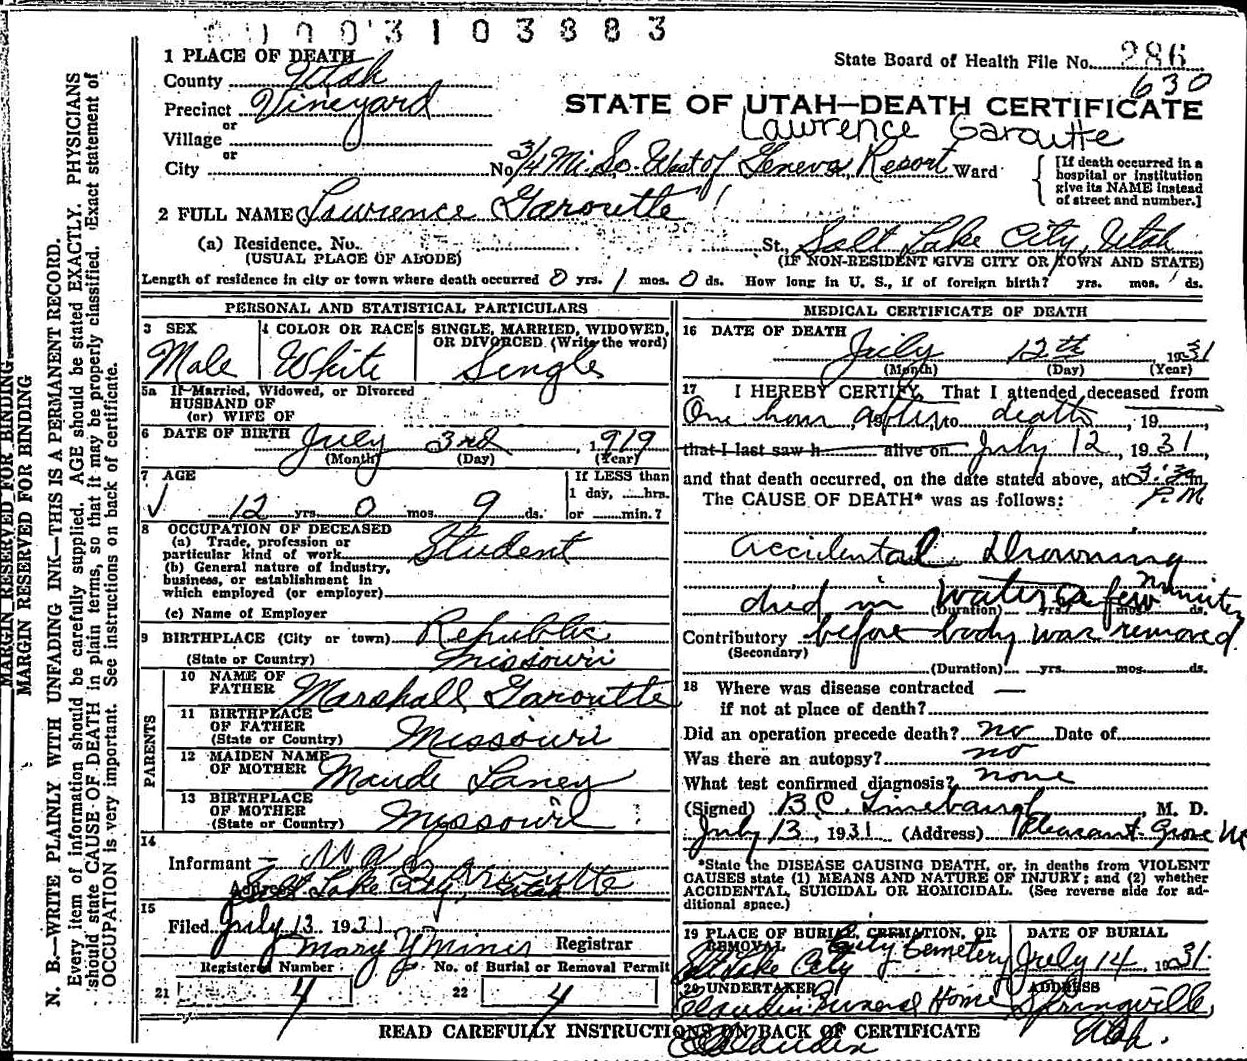 0003103883
1 PLACE OF DEATH
State Board of Health File No. 286
630
County Utah
Precinct Vineyard
STATE OF UTAH—DEATH CERTIFICATE
Lawrence Garoutte
or
Village
or
City No. 3/4 Mi. So. West of Geneva Resort Ward
[If death occurred in a
hospital or institution
give its NAME instead
of street and number.]
2 FULL NAME Lawrence Garoutte
(a) Residence. No. St., Salt Lake City, Utah
(USUAL PLACE OF ABODE) (IF NON-RESIDENT GIVE CITY OR TOWN AND STATE)
Length of residence in city or town where death occurred 0 yrs. 1 mos. 0 ds. How long in U. S., if of foreign birth? yrs. mos. ds.
PERSONAL AND STATISTICAL PARTICULARS
3 SEX
Male
4 COLOR OR RACE
White
5 SINGLE, MARRIED, WIDOWED,
OR DIVORCED (Write the word)
Single
5a If Married, Widowed, or Divorced
HUSBAND OF
(or) WIFE OF
6 DATE OF BIRTH July 3rd 1919
(Month) (Day) (Year)
7 AGE
12 yrs. 0 mos. 9 ds.
If LESS than
1 day, hrs.
or min.?
8 OCCUPATION OF DECEASED
(a) Trade, profession or
particular kind of work Student
(b) General nature of industry,
business, or establishment in
which employed (or employer)
(c) Name of Employer
9 BIRTHPLACE (City or town) Republic
(State or Country) Missouri
PARENTS
10 NAME OF
FATHER Marshall Garoutte
11 BIRTHPLACE
OF FATHER
(State or Country) Missouri
12 MAIDEN NAME
OF MOTHER Maude Laney
13 BIRTHPLACE
OF MOTHER
(State or Country) Missouri
14
Informant Garoutte
Address Salt Lake City, Utah
15
Filed July 13 1931
Mary Y Minis Registrar
Registered Number No. of Burial or Removal Permit
21 4 22 4
MEDICAL CERTIFICATE OF DEATH
16 DATE OF DEATH
July 12th 1931
(Month) (Day) (Year)
17 I HEREBY CERTIFY, That I attended deceased from
One hour after, 19 , to death, 19 ,
that I last saw h alive on July 12, 1931,
and that death occurred, on the date stated above, at 3:30 m
P.M
The CAUSE OF DEATH* was as follows:
accidental Drowning
died in water a few minutes
(Duration) yrs. mos. ds.
Contributory before body was removed
(Secondary)
(Duration) yrs. mos. ds.
18 Where was disease contracted —
if not at place of death?
Did an operation precede death? no Date of
Was there an autopsy? no
What test confirmed diagnosis? none
(Signed) B.C. Linebaugh M. D.
July 13, 1931 (Address) Pleasant Grove
*State the DISEASE CAUSING DEATH, or, in deaths from VIOLENT
CAUSES state (1) MEANS AND NATURE OF INJURY; and (2) whether
ACCIDENTAL, SUICIDAL OR HOMICIDAL. (See reverse side for ad-
ditional space.)
19 PLACE OF BURIAL, CREMATION, OR
REMOVAL City Cemetery
Salt Lake City
DATE OF BURIAL
July 14, 1931
20 UNDERTAKER
Claudin Funeral Home
ADDRESS
Springville,
Utah.
READ CAREFULLY INSTRUCTIONS ON BACK OF CERTIFICATE
MARGIN RESERVED FOR BINDING
MARGIN RESERVED FOR BINDING
N. B.—WRITE PLAINLY WITH UNFADING INK—THIS IS A PERMANENT RECORD.
Every item of information should be carefully supplied. AGE should be stated EXACTLY. PHYSICIANS
should state CAUSE OF DEATH in plain terms, so that it may be properly classified. Exact statement of
OCCUPATION is very important. See instructions on back of certificate.